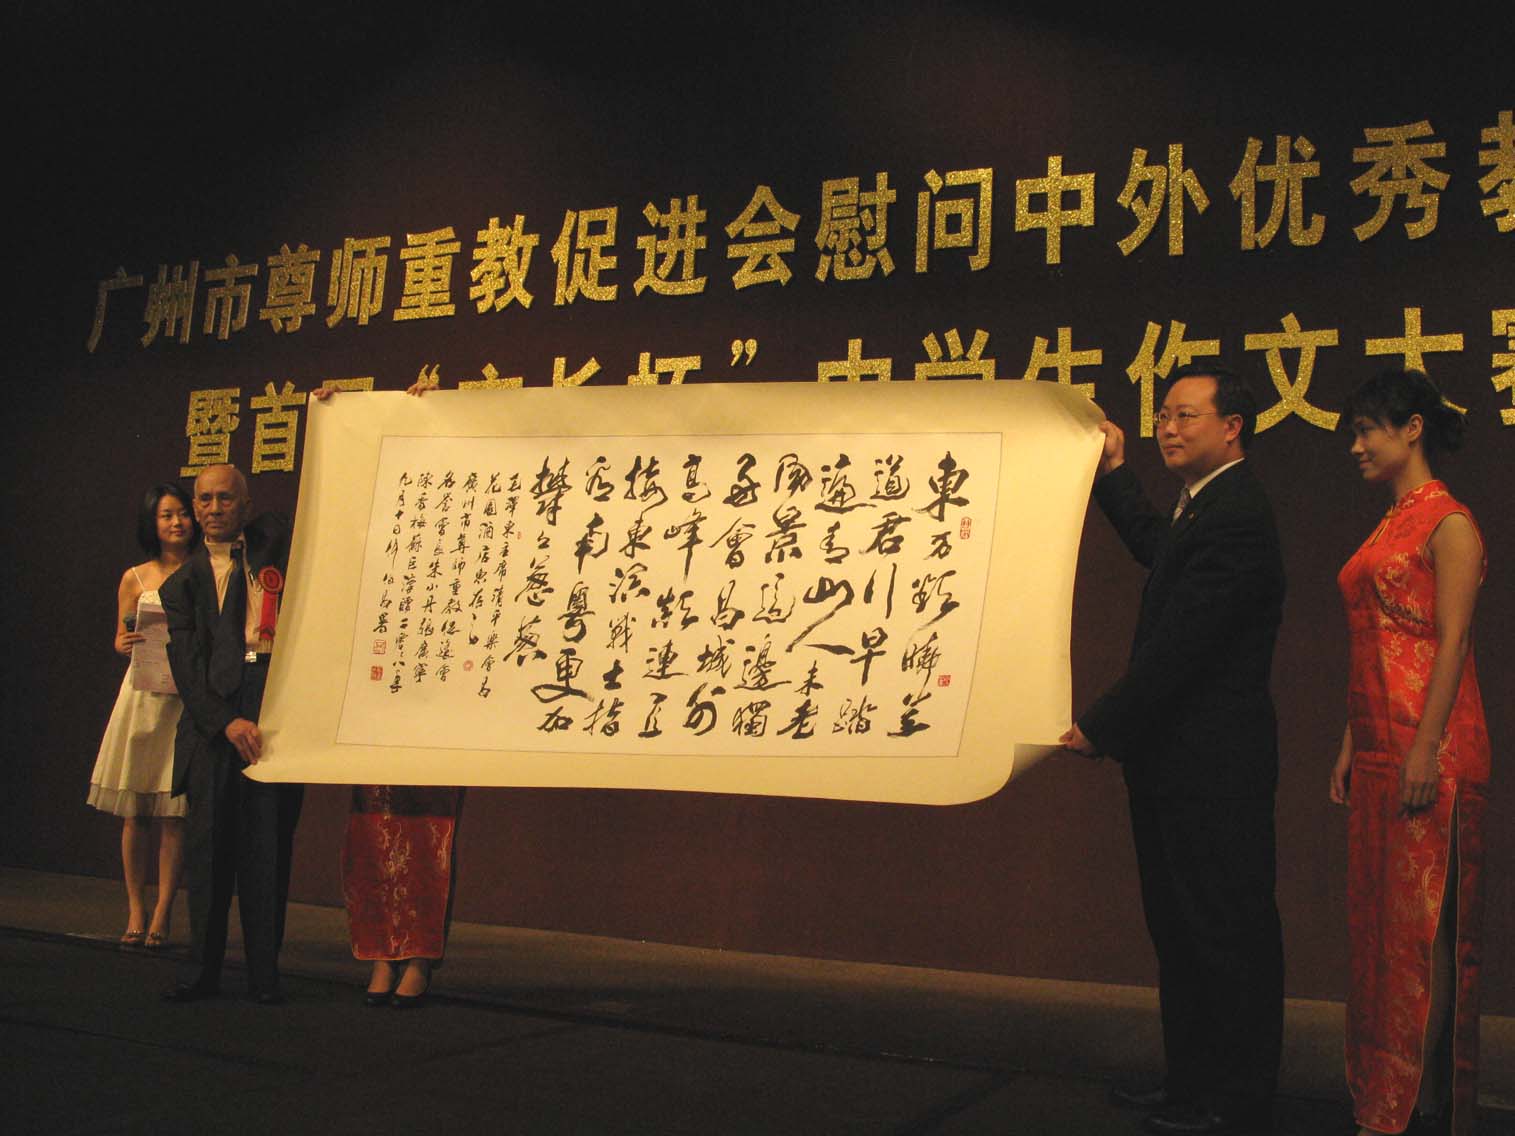 广州市尊师重教促进会慰问中外优秀教
暨首届“市长杯”中学生作文大赛
東方欲曉莫
道君行早踏
遍青山人未老
風景這邊獨
好會昌城外
高峰顛連直
接東溟戰士指
看南粵更加
鬱々蔥蔥
毛澤東主席清平樂會昌
花園酒店
廣州市尊師重教促進會
名譽會長朱小丹張廣寧
陳香梅 贈二零零八年
九月十日